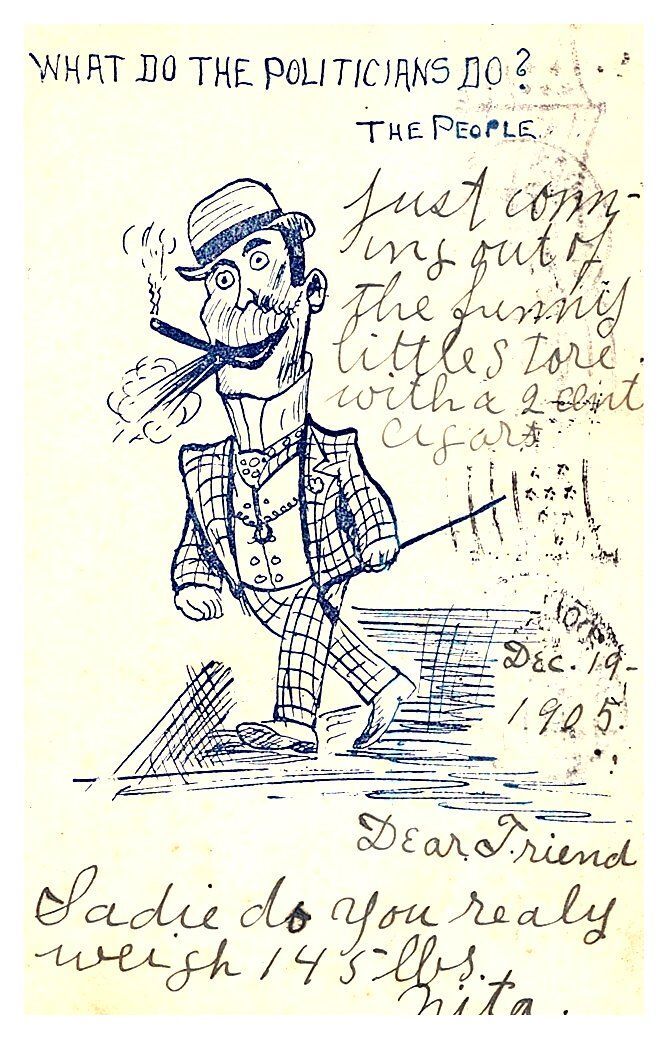 WHAT DO THE POLITICIANS DO?
THE PEOPLE.
Just com-
ing out of
the funny
little store
with a 2 cent
cigars
Dec. 19-
1905.
Dear Friend
Sadie do you realy
weigh 145 lbs.
Nita.